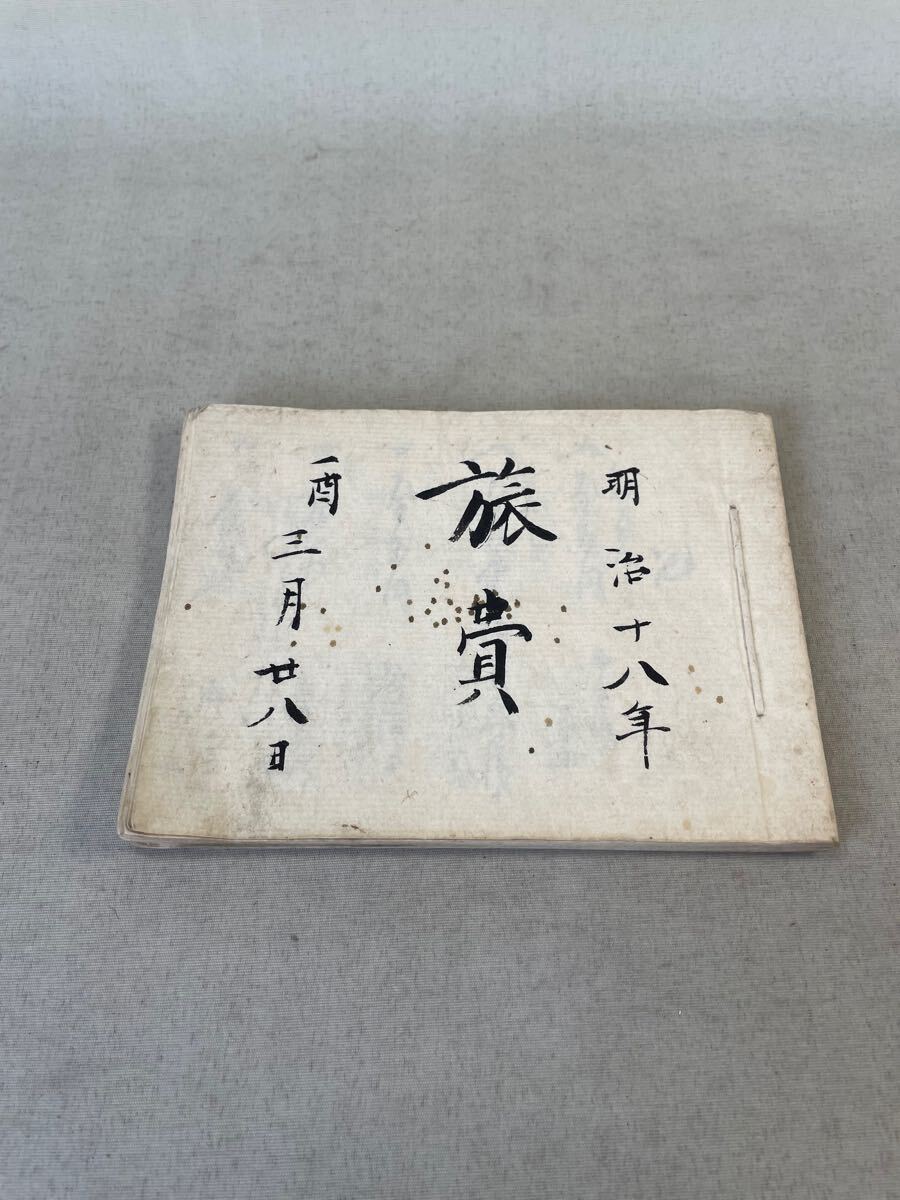 明治十八年
旅費
酉三月廿八日